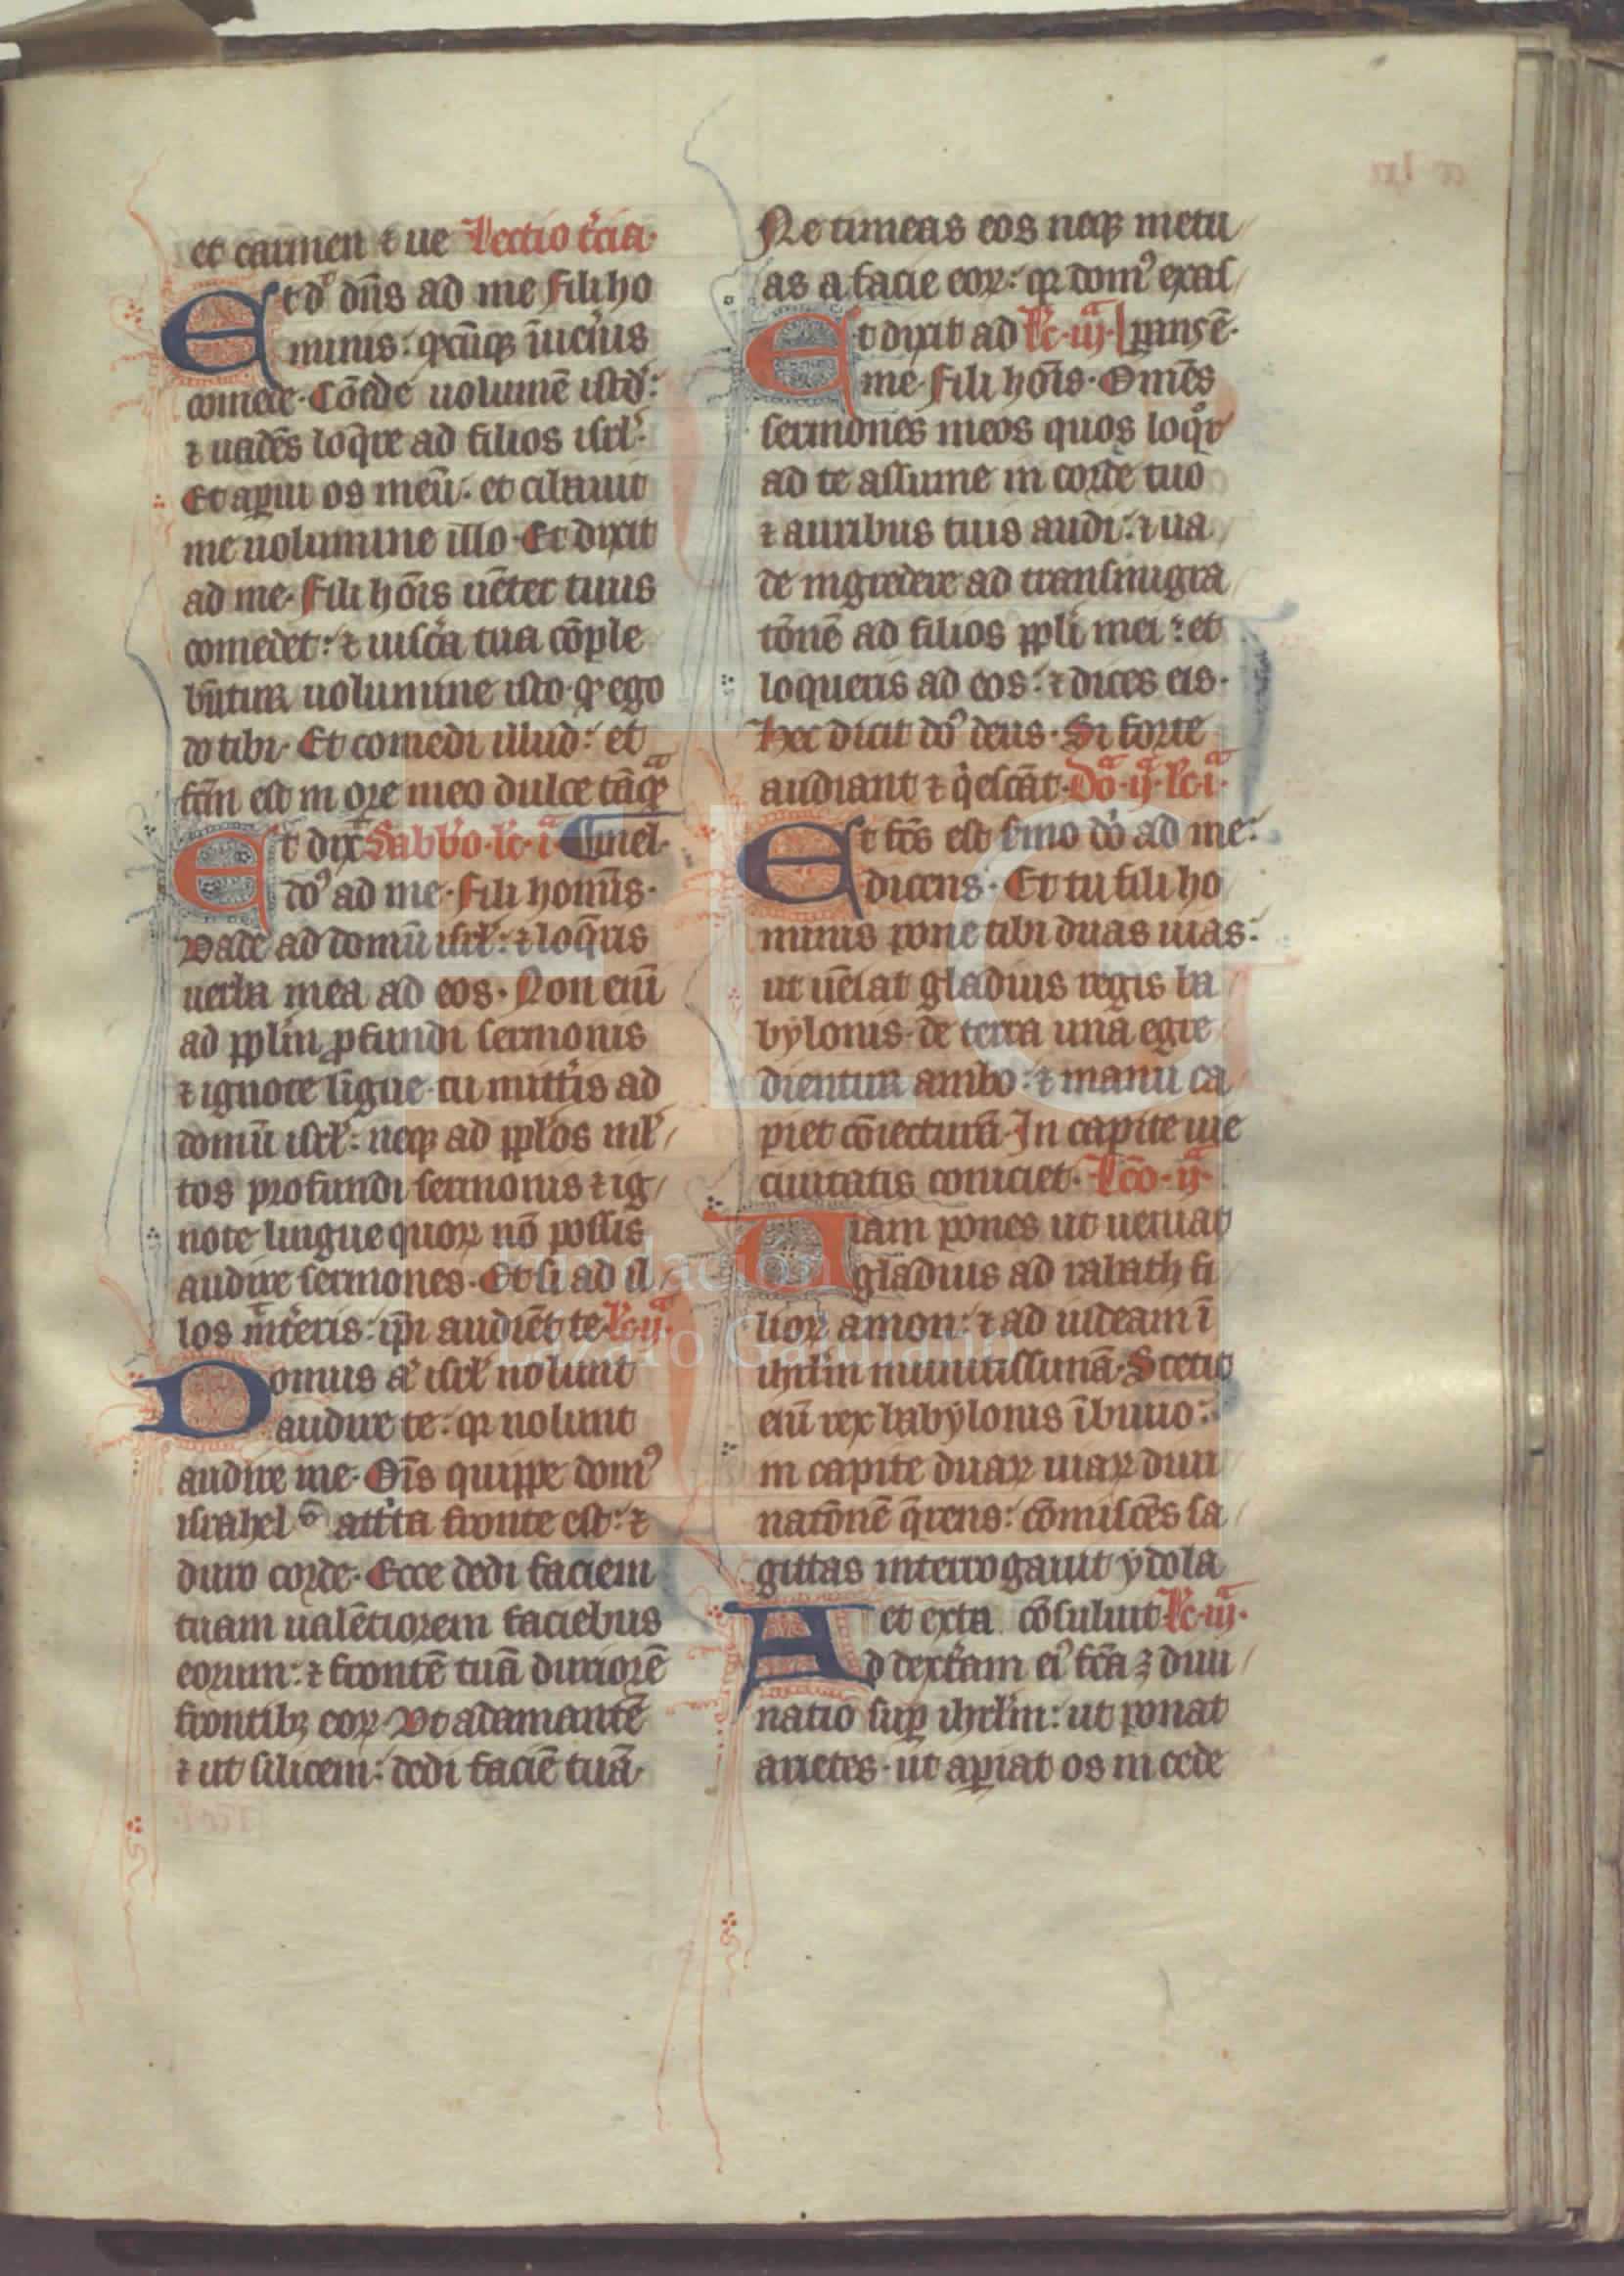 et carmen ⁊ ue Lectio t̉cia.
Et d' dñs ad me fili ho
minis: qͥcūqꝫ īuen̉is
comede. Cōede uolumē istđ:
⁊ uadēs loq̄re ad filios isrł.
Et aꝑui os meū: et cibauit
me uolumine illo. Et dixit
ad me. Fili hōis uēter tuus
comedet: ⁊ uisc̉a tua cōple
būtur uolumine isto. qͦ ego
do tibi. Et comedi illud: et
fc̄m est in ore meo dulce tāqͣ
Et dix̉ Sabb̉o. lc̄. iͣ. ¶ mel.
do᷒ ad me. Fili hominis.
Vade ad domū isrł: ⁊ loq̄ris
uerba mea ad eos. Non enī
ad pplm̄ ꝓfundi sermonis
⁊ ignote līgue. tu mitt̉is ad
domū isrł: neqꝫ ad pplos ml̉
tos profundi sermonis ⁊ ig
note lingue quoꝝ nō possis
audire sermones. Et si ad il
los mit̉eris: ip̄i audiēt te. Lc̄. ijͣ.
Domus aͧ isrł nolunt
audire te: qꝛ nolunt
audire me. Oīs quippe dom᷒
israhel att̉ta fronte est: ⁊
duro corde. Ecce dedi faciem
tuam ualētiorem faciebus
eorum: ⁊ frontē tuā duriorē
frontibꝫ eoꝝ. Vt adamantē
⁊ ut silicem: dedi faciē tuā.
Ne timeas eos neqꝫ metu
as a facie eoꝝ: qꝛ dom᷒ exas
Et dixit ad Lc̄. iijͣ. [ꝑans ē.
me. Fili hōis. Omēs
sermones meos quos loqͦr
ad te assume in corde tuo
⁊ auribus tuis audi: ⁊ ua
de ingredere ad transmigra
tōnē ad filios ppli mei: et
loqueris ad eos: ⁊ dices eis.
Hec dicit do᷒ deus. Si forte
audiant ⁊ qͥescāt. Doͣ. ijͣ. lc̄. iͣ.
Et fc̄s est s̉mo dō ad me:
dicens. Et tu fili ho
minis pone tibi duas uias:
ut uēiat gladius regis ba
bylonis. de terra una egre
dientur ambo: ⁊ manu ca
piet cōiecturā. In capite uie
ciuitatis coniciet. Lc̄o. ijͣ.
Uiam pones ut ueniat
gladius ad rabath fi
lioꝝ amon: ⁊ ad iudeam ī
ihrl̄m munitissimā. Stetit
enī rex babylonis ī biuio:
in capite duaꝝ uiaꝝ diui
natōnē q̄rens: cōmiscēs sa
gittas interrogauit ydola
et exta cōsuluit Lc̄. iijͣ.
Ad dext̉am ei᷒ fc̄a ꝫ diui
natio suꝑ ihrl̄m: ut ponat
arietes. ut aꝑiat os in cede
Fundación
Lázaro Galdiano